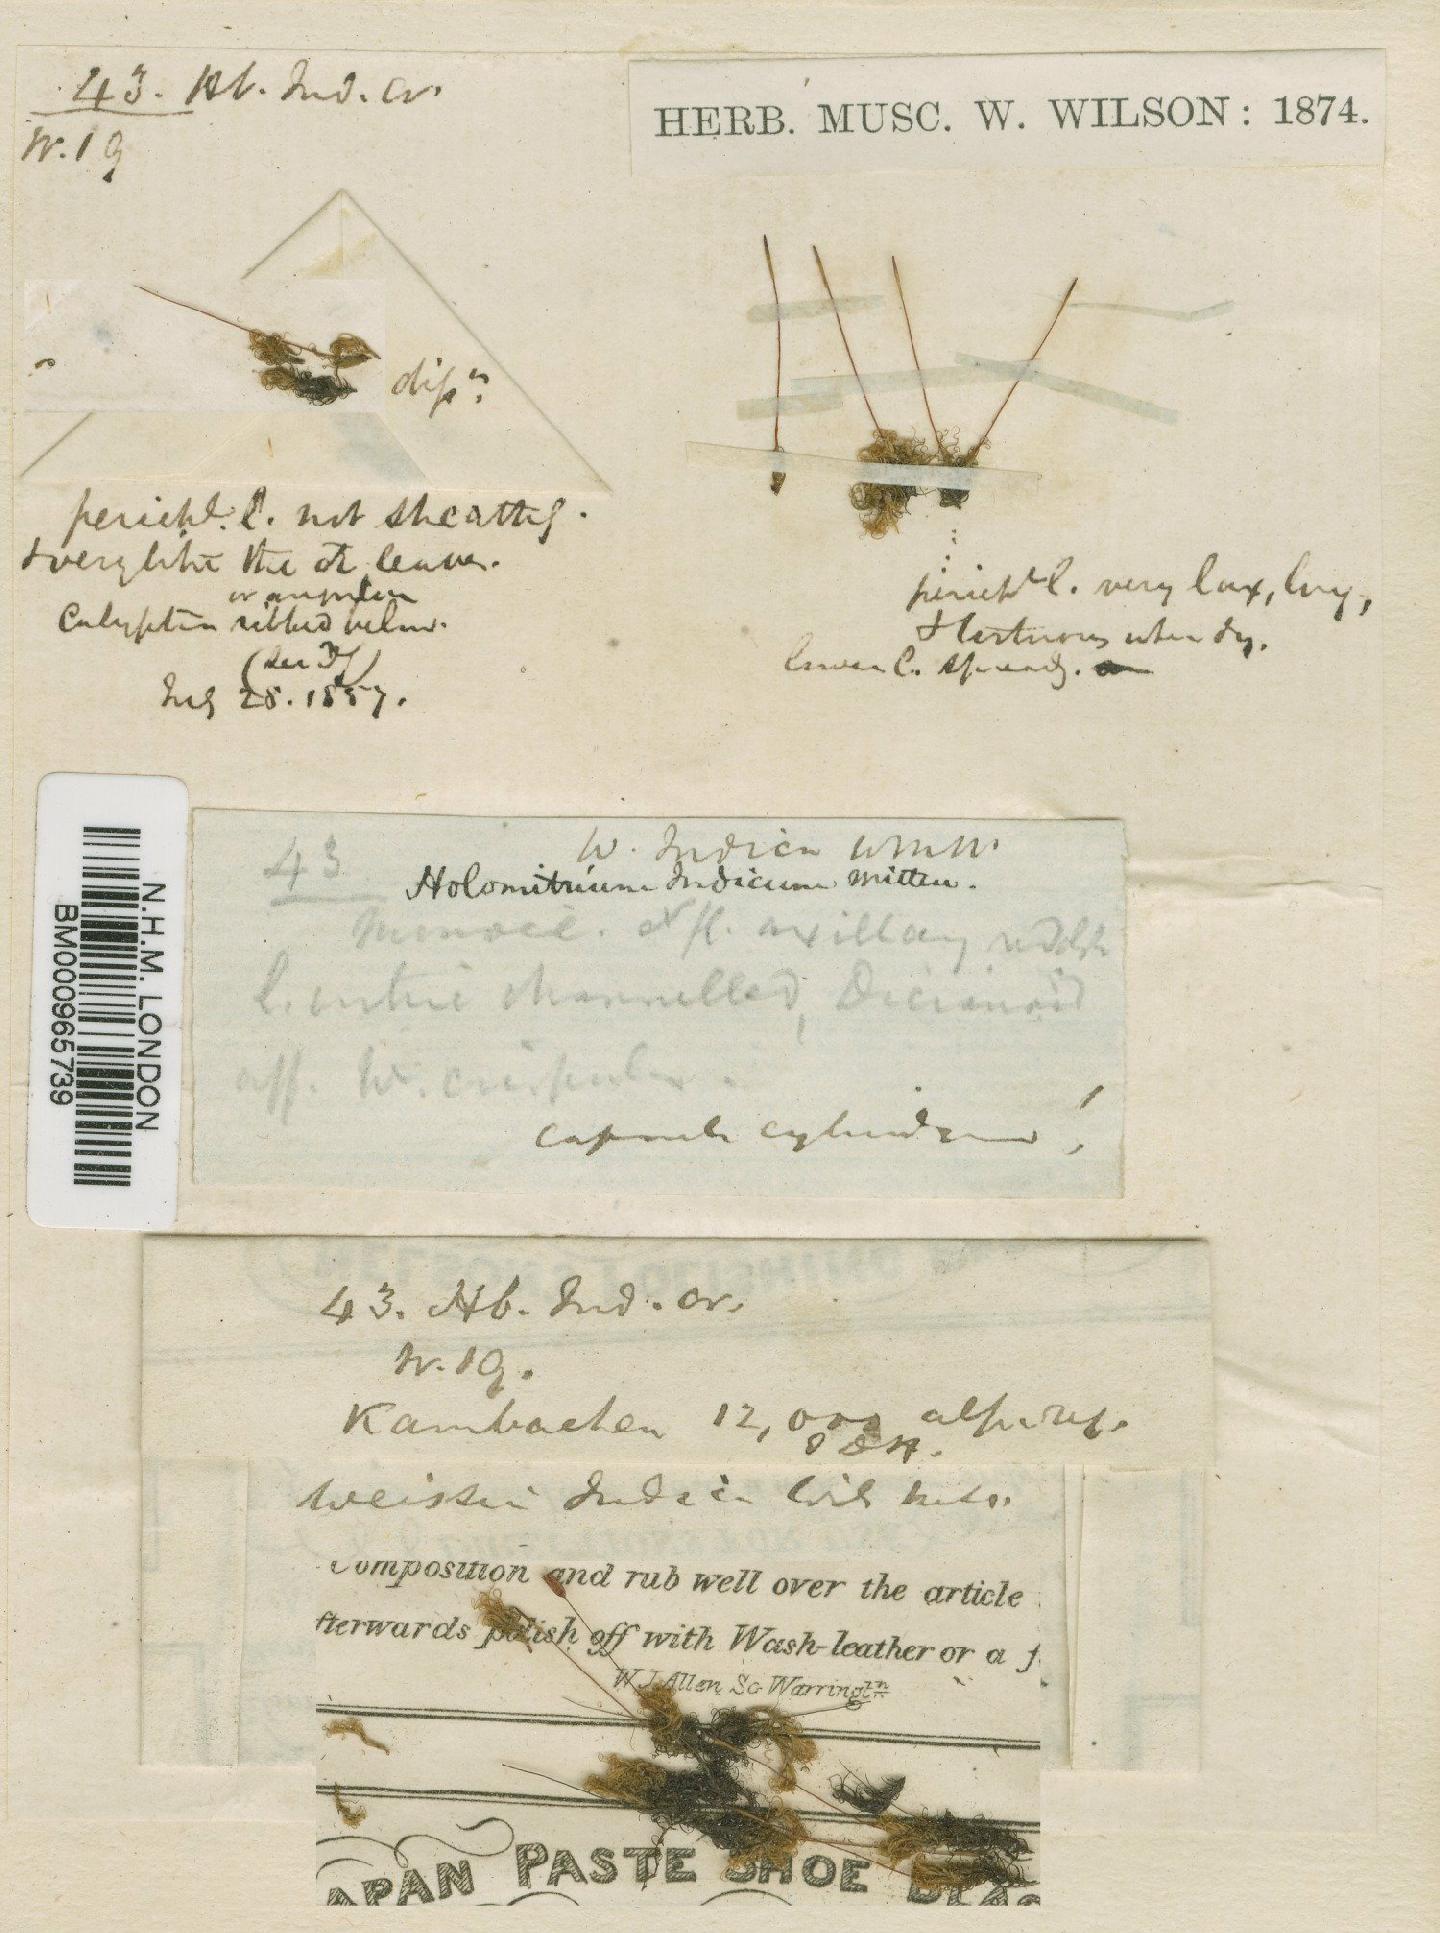 43. Hb. Ind. or.
W. 19
HERB. MUSC. W. WILSON: 1874.
dissn.
perichl. l. not sheathg.
& very like the or leaves.
or angular
Calyptra ribbed below.
(see Df)
1857.
perichl l. very lax, long,
& tortuous when dry.
lower l. spreadg.
N.H.M. LONDON
BM000965739
43
W. Indica
Holomitrium Indicum Mitten.
Monoic. fl. axillary
l. entire channelled, Dicranoid
aff. W. crispula.
capsule cylindrical!
43. Hb. Ind. or.
W. 19.
Kambachen 12,000 alp. reg.
JDH.
Weissia Indica Wils
Composition and rub well over the article
fterwards polish off with Wash-leather or a
W J. Allen Sc Warringtn
APAN PASTE SHOE BLAC